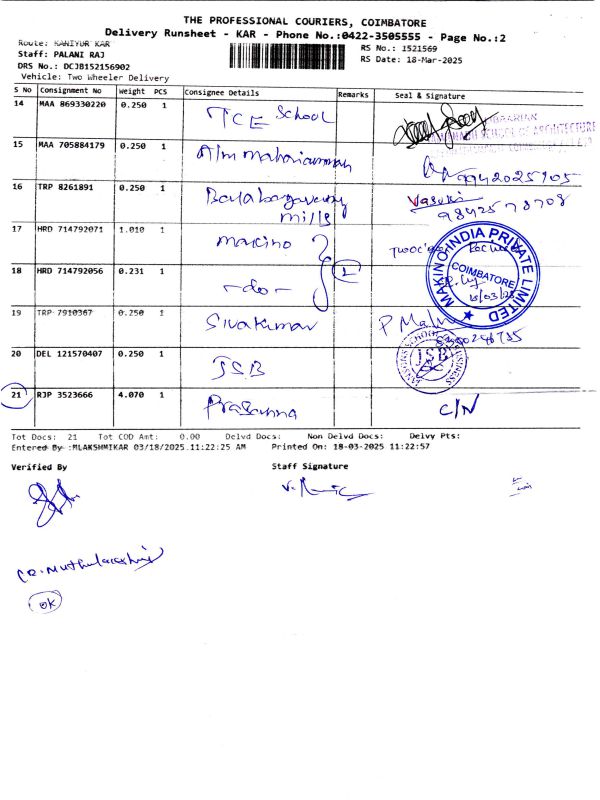 THE PROFESSIONAL COURIERS, COIMBATORE
Delivery Runsheet - KAR - Phone No.:0422-3505555 - Page No.:2
Route: KANIYUR KAR
Staff: PALANI RAJ
DRS No.: DCJB152156902
Vehicle: Two Wheeler Delivery
RS No.: 1521569
RS Date: 18-Mar-2025
S No Consignment No Weight PCS Consignee Details Remarks Seal & Signature
14 MAA 869330220 0.250 1 TCE School
SCHOOL OF ARCHITECTURE
15 MAA 705884179 0.250 1 9942025905
16 TRP 8261891 0.250 1 mills Vasuki
9842578708
17 HRD 714792071 1.010 1 makino
18 HRD 714792056 0.231 1 -do- 1
MAKINO INDIA PRIVATE LIMITED
COIMBATORE
18/03/25
19 TRP 7910367 0.250 1 Sivakumar
20 DEL 121570407 0.250 1 JSB JSB
21 RJP 3523666 4.070 1 Prasanna C/N
Tot Docs: 21 Tot COD Amt: 0.00 Delvd Docs: Non Delvd Docs: Delvy Pts:
Entered By :MLAKSHMIKAR 03/18/2025 11:22:25 AM Printed On: 18-03-2025 11:22:57
Verified By Staff Signature
OK